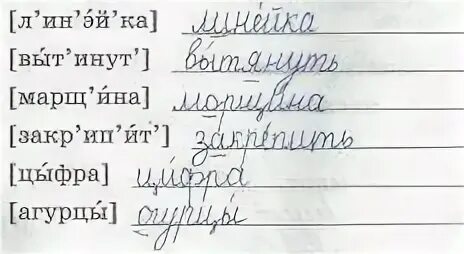 [л'ин'э́й'ка] лине́йка
[вы́т'инут'] вы́тянуть
[марщ'и́на] морщина
[закр'ип'и́т'] закрепить
[цы́фра] ци́фра
[агурцы́] огурцы́